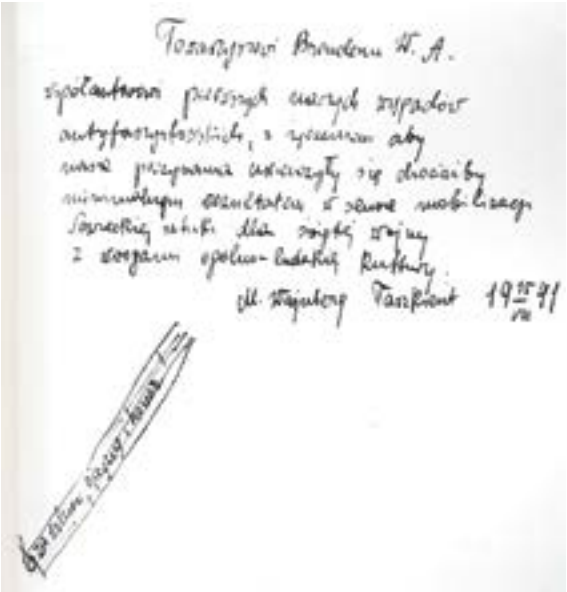 W. A.
pierwszych naszych wypadów
antyfaszystowskich, z życzeniem aby
nasze poczynania uwieńczyły się chociażby
minimalnym rezultatem w sensie mobilizacji
Sowieckiej sztuki dla świętej wojny
z wrogami ogólno-ludzkiej Kultury.
M. Wajnberg Taszkient 19 41